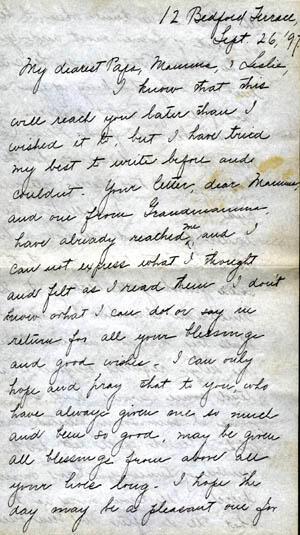 12 Bedford Terrace,
Sept. 26, '97
My dearest Papa, Mamma, & Leslie,
I know that this
will reach you later than I
wished it to, but I have tried
my best to write before and
couldn't. Your letter, dear Mamma,
and one from Grandmamma,
have already reached me and I
can not express what I thought
and felt as I read them. I don't
know what I can do or say in
return for all your blessings
and good wishes. I can only
hope and pray that to you who
have always given me so much
and been so good, may be given
all blessings from above all
your lives long. I hope the
day may be a pleasant one for